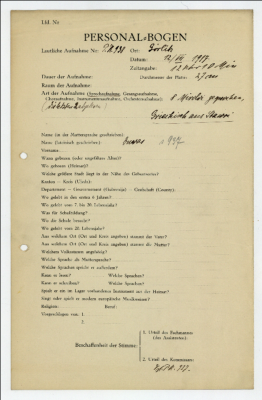 Lfd. Nr.
PERSONAL-BOGEN
Lautliche Aufnahme No. PK 931 Ort: Görlitz
Datum: 12/VII 1917
Zeitangabe: 12 Uhr
Dauer der Aufnahme: Durchmesser der Platte: 27 cm
Raum der Aufnahme:
Art der Aufnahme (Sprechaufnahme, Gesangsaufnahme,
Choraufnahme, Instrumentenaufnahme, Orchesteraufnahme):
Griechisch aus
Name (in der Muttersprache geschrieben):
Name (lateinisch geschrieben):
Vorname:
Wann geboren (oder ungefähres Alter)?
Wo geboren (Heimat)?
Welche größere Stadt liegt in der Nähe des Geburtsortes?
Kanton — Kreis (Ujedz):
Departement — Gouvernement (Gubernija) — Grafschaft (County):
Wo gelebt in den ersten 6 Jahren?
Wo gelebt vom 7. bis 20. Lebensjahr?
Was für Schulbildung?
Wo die Schule besucht?
Wo gelebt vom 20. Lebensjahr?
Aus welchem Ort (Ort und Kreis angeben) stammt der Vater?
Aus welchem Ort (Ort und Kreis angeben) stammt die Mutter?
Welchem Volksstamm angehörig?
Welche Sprache als Muttersprache?
Welche Sprachen spricht er außerdem?
Kann er lesen? Welche Sprachen?
Kann er schreiben? Welche Sprachen?
Spielt er ein im Lager vorhandenes Instrument aus der Heimat?
Singt oder spielt er modern europäische Musikweisen?
Religion: Beruf:
Vorgeschlagen von: 1.
2.
Beschaffenheit der Stimme:
1. Urteil des Fachmannes
(des Assistenten):
2. Urteil des Kommissars: